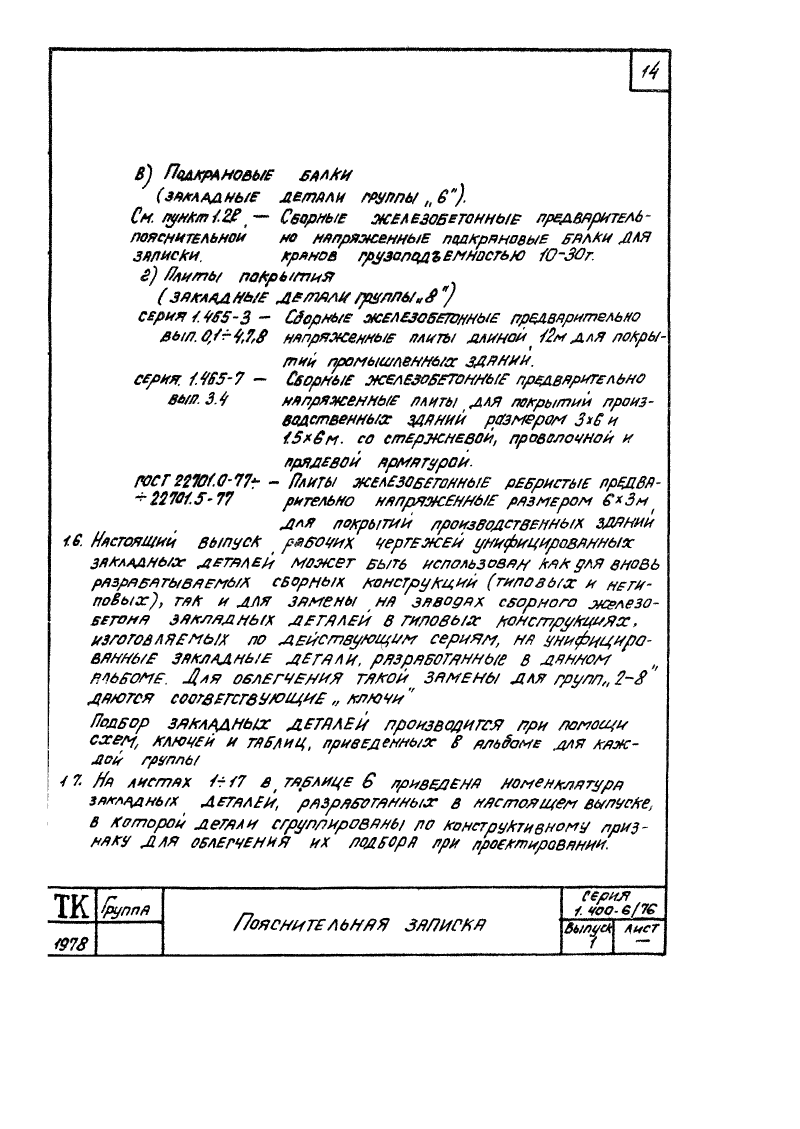 14
В) Подкрановые балки
(закладные детали группы „6").
См. пункт 1.2В — Сборные железобетонные предваритель-
пояснительной но напряженные подкрановые балки для
записки. кранов грузоподъемностью 10-30т.
г) Плиты покрытия
(закладные детали группы „8")
серия 1.465-3 — Сборные железобетонные предварительно
вып. 0,1÷4,7,8 напряженные плиты длиной 12м для покры-
тий промышленных зданий.
серия 1.465-7 — Сборные железобетонные предварительно
вып. 3.4 напряженные плиты для покрытий произ-
водственных зданий размером 3×6 и
1.5×6м. со стержневой, проволочной и
прядевой арматурой.
ГОСТ 22701.0-77÷ — Плиты железобетонные ребристые предва-
÷ 22701.5-77 рительно напряженные размером 6×3м
для покрытий производственных зданий
1.6. Настоящий выпуск рабочих чертежей унифицированных
закладных деталей может быть использован как для вновь
разрабатываемых сборных конструкций (типовых и нети-
повых), так и для замены на заводах сборного железо-
бетона закладных деталей в типовых конструкциях,
изготовляемых по действующим сериям, на унифициро-
ванные закладные детали, разработанные в данном
альбоме. Для облегчения такой замены для групп „2-8"
даются соответствующие „ключи"
Подбор закладных деталей производится при помощи
схем, ключей и таблиц, приведенных в альбоме для каж-
дой группы
1 7. На листах 1÷17 в таблице 6 приведена номенклатура
закладных деталей, разработанных в настоящем выпуске,
в которой детали сгруппированы по конструктивному приз-
наку для облегчения их подбора при проектировании.
ТК Группа
1978
Пояснительная записка
серия
1.400-6/76
Выпуск Лист
1 —